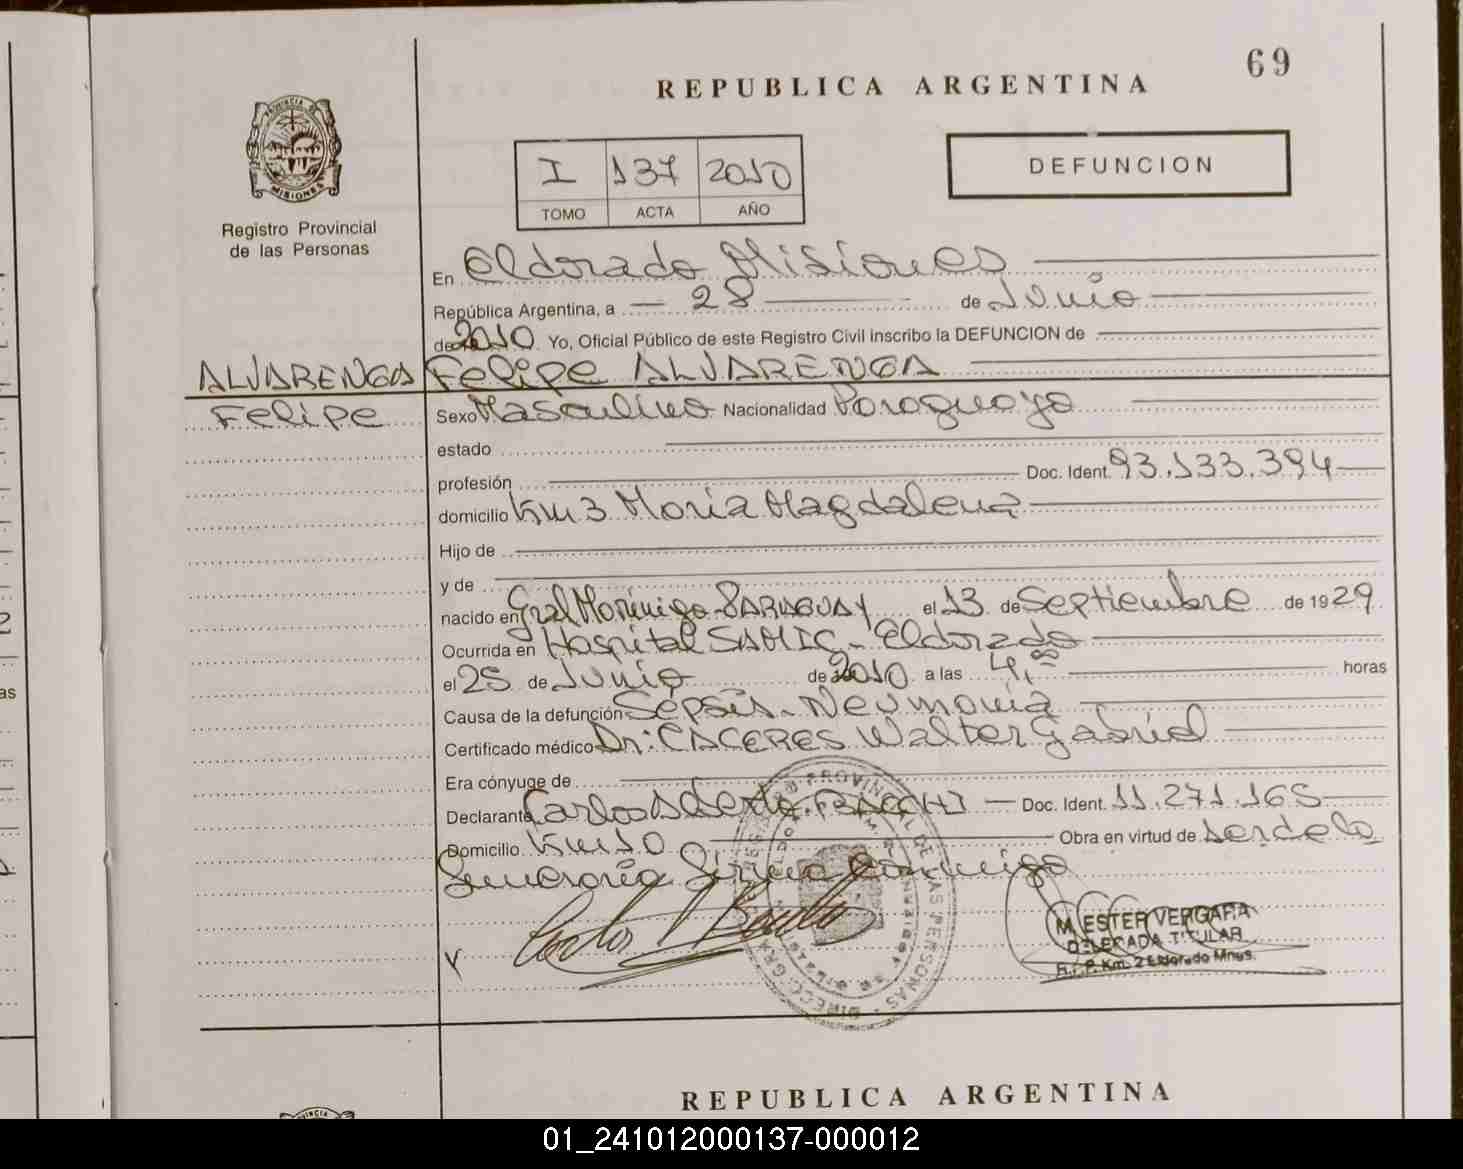 69
REPUBLICA ARGENTINA
PROVINCIA DE MISIONES
Registro Provincial
de las Personas
I 137 2010
TOMO ACTA AÑO
DEFUNCION
En Eldorado Misiones
República Argentina, a 28 de Junio
de 2010 Yo, Oficial Público de este Registro Civil inscribo la DEFUNCION de
ALVARENGA Felipe ALVARENGA
Felipe
Sexo Masculino Nacionalidad Paraguaya
estado
profesión Doc. Ident. 93.133.394
domicilio Km 3 Maria Magdalena
Hijo de
y de
nacido en Gral Morinigo - PARAGUAY el 13 de Septiembre de 1929
Ocurrida en Hospital SAMIC - Eldorado
el 25 de Junio de 2010 a las 4,00 horas
Causa de la defunción Sepsis - Neumonia
Certificado médico Dr: CACERES Walter Gabriel
Era cónyuge de
Declarante Carlos Doc. Ident. 11.271.165
Domicilio Km 10 Obra en virtud de ser de la
Funeraria Firma conmigo
M. ESTER VERGARA
DELEGADA TITULAR
R.P.P. Km. 2 Eldorado Mnes.
REPUBLICA ARGENTINA
01_241012000137-000012